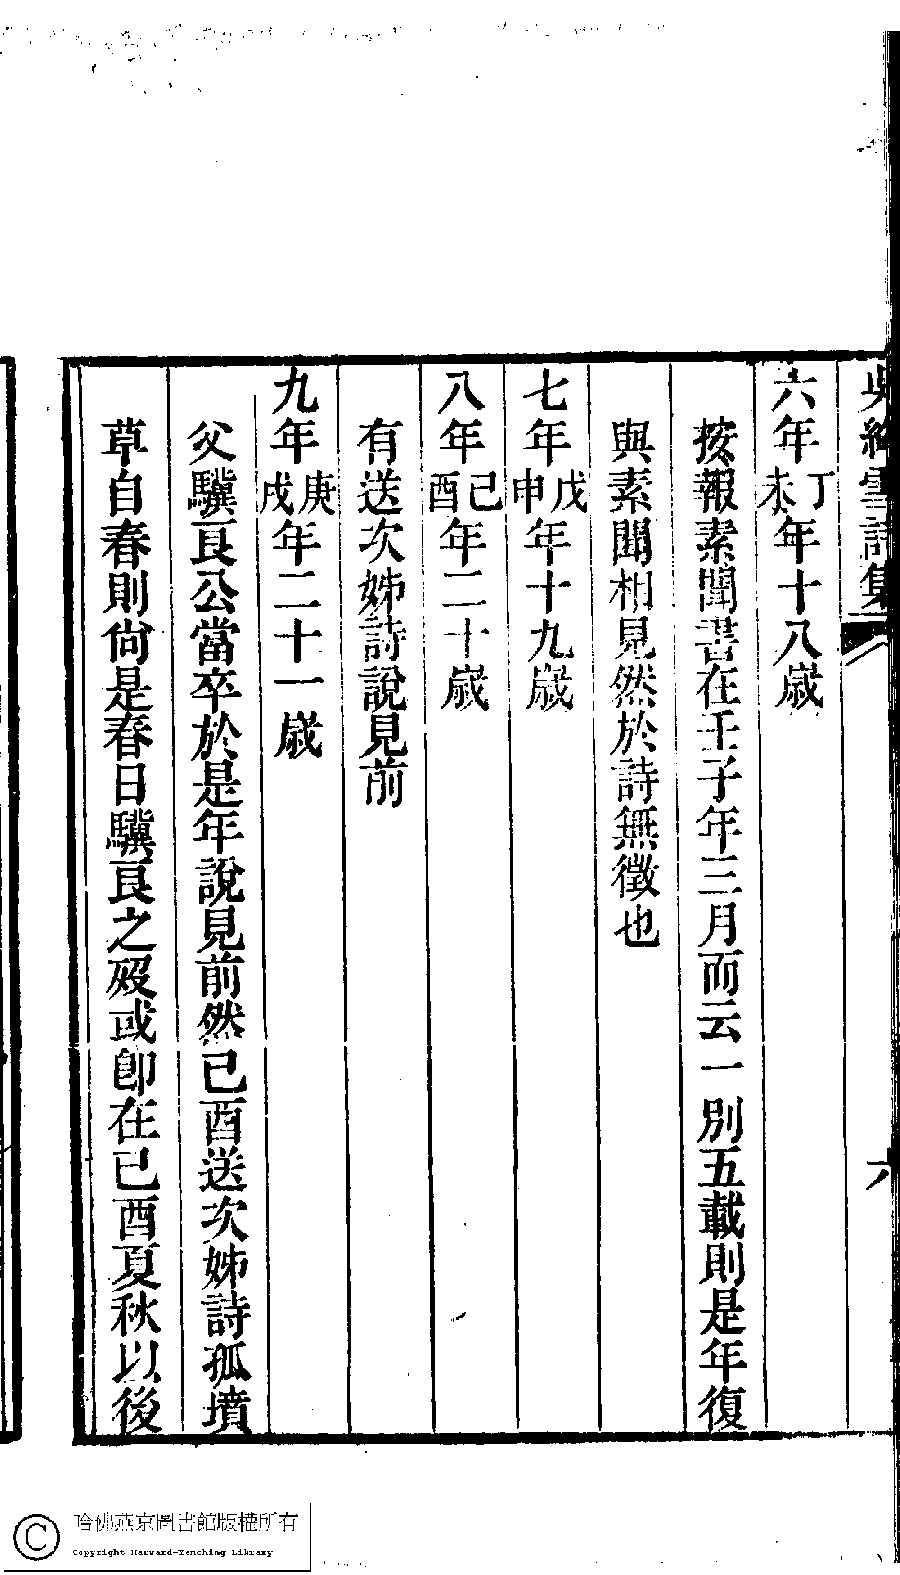 吳絳雪詩集
六
六年丁未年十八歲
按報素聞書在壬子年三月而云一別五載則是年復
與素聞相見然於詩無徵也
七年戊申年十九歲
八年己酉年二十歲
有送次姊詩說見前
九年庚戌年二十一歲
父驥良公當卒於是年說見前然已酉送次姊詩孤墳
草自春則尙是春日驥良之歿或卽在已酉夏秋以後
哈佛燕京圖書館版權所有
Copyright Harvard-Yenching Library